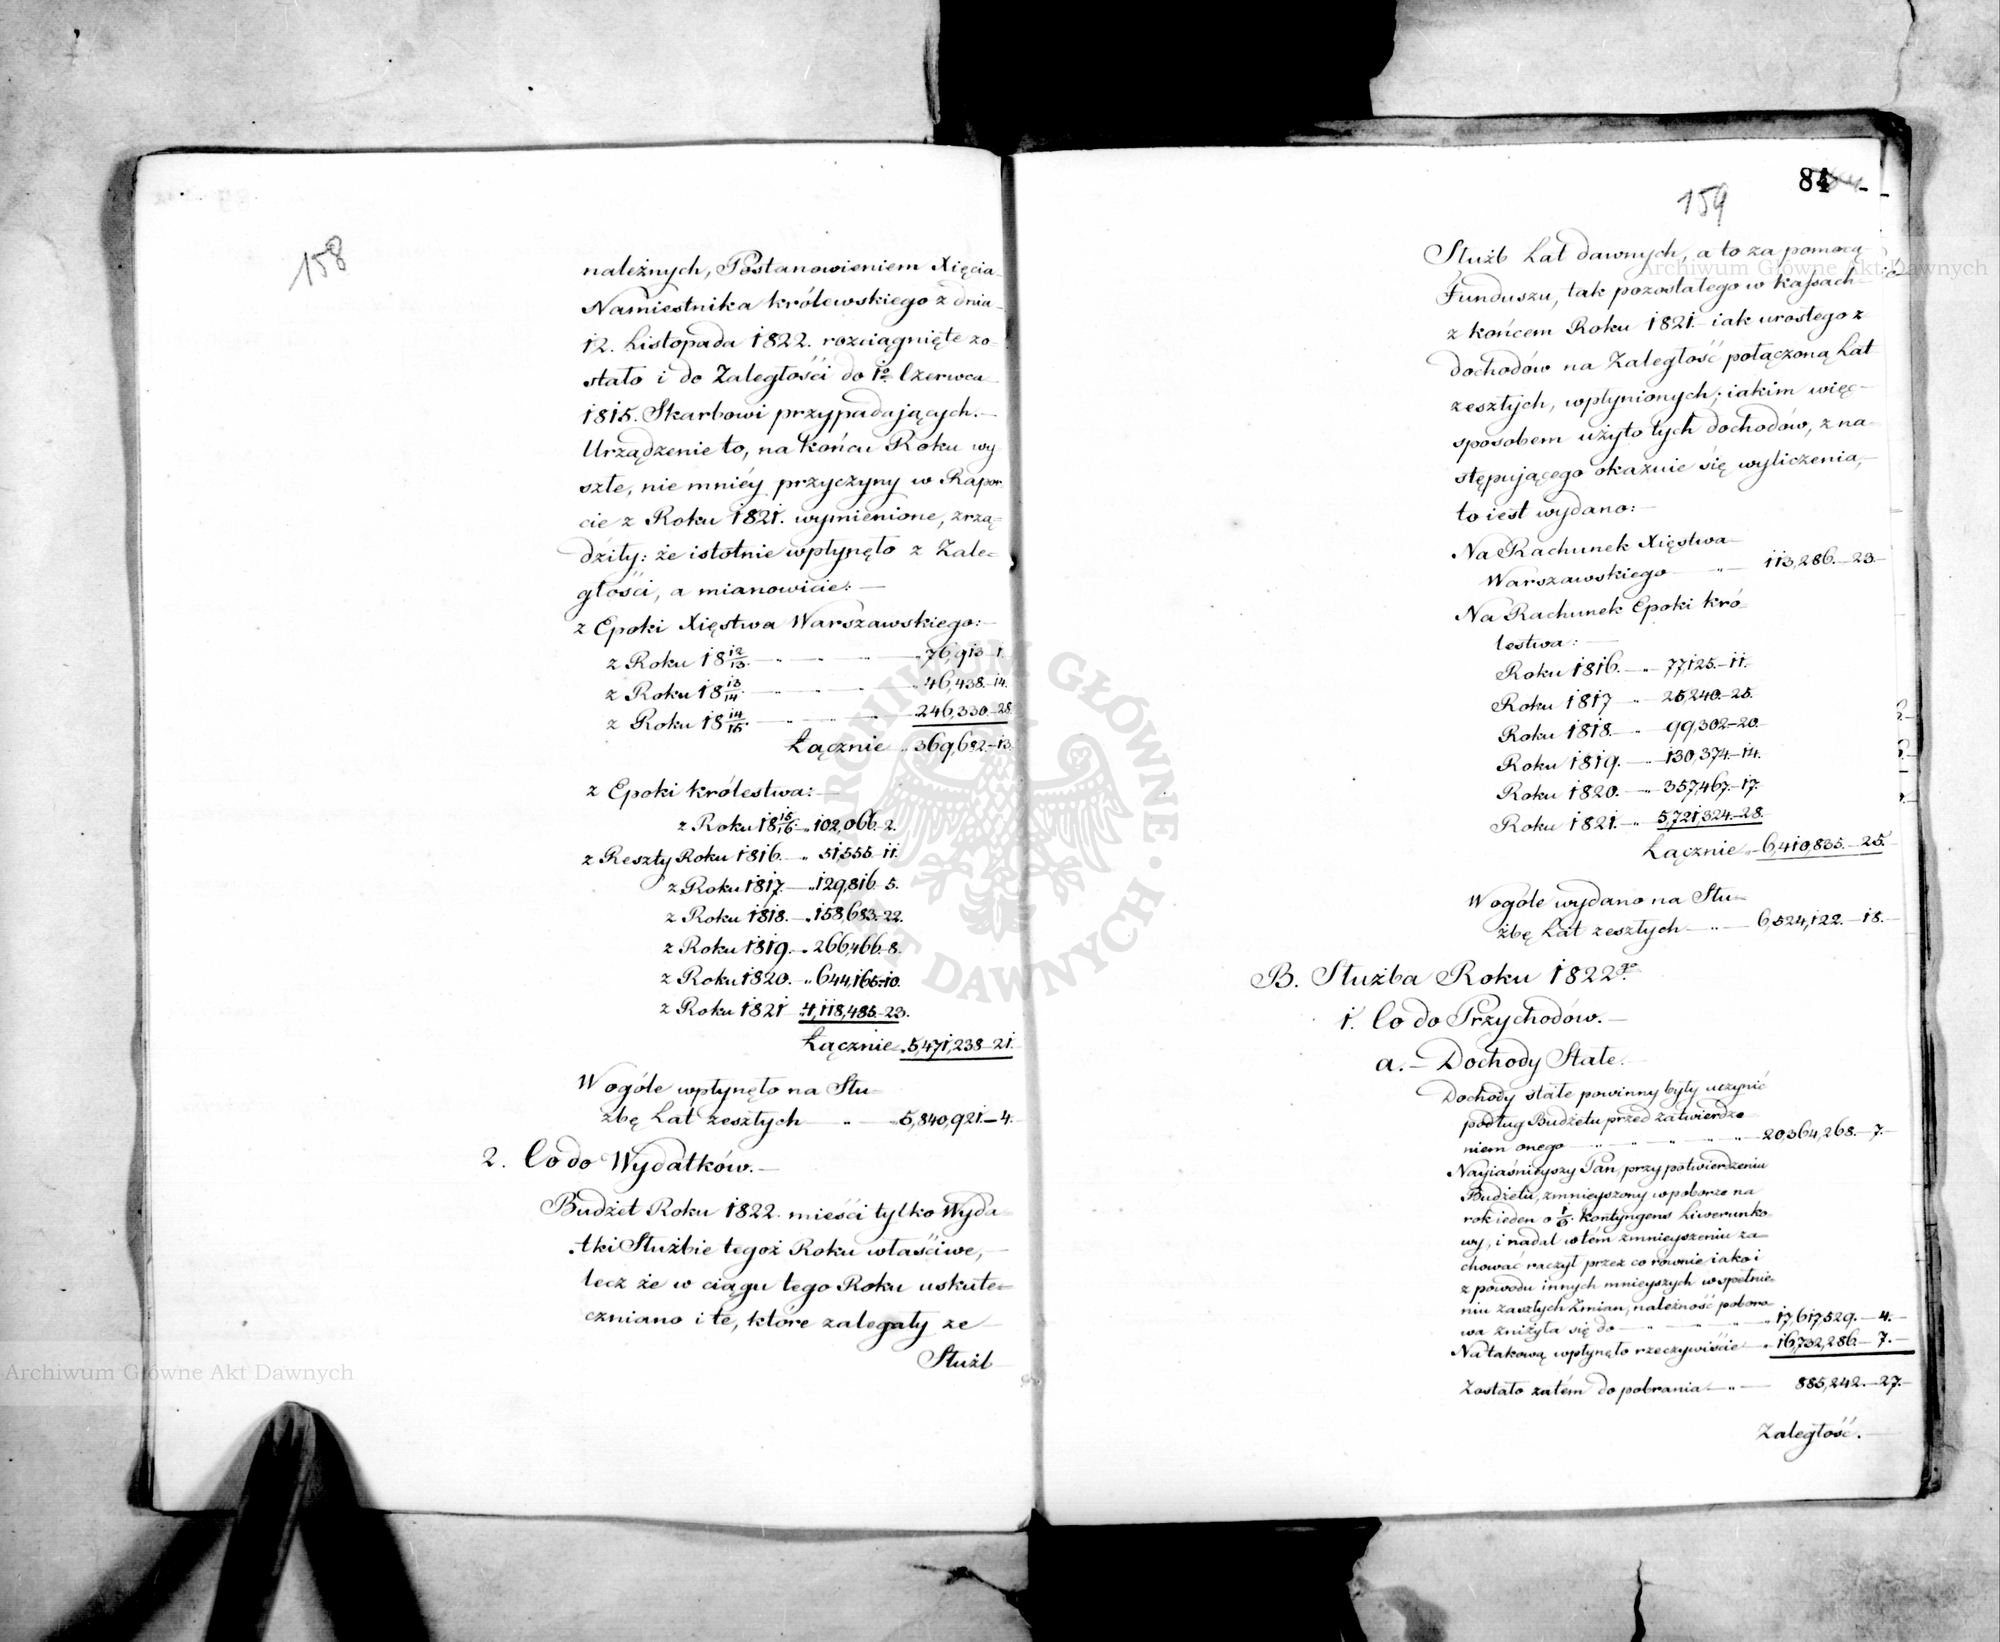 158
należnych, Postanowieniem Xięcia
Namiestnika królewskiego z dnia
12. Listopada 1822. rozciągnięte zo-
stało i do Zaległości do 1o Czerwca
1815. Skarbowi przypadających.—
Urządzenie to, na końcu Roku wy
szłe, nie mniéy przyczyny w Rapor
cie z Roku 1821. wymienione, zrzą-
dziły: że istotnie wpłynęło z Zale-
głości, a mianowicie: —
z Epoki Xięstwa Warszawskiego:—
z Roku 18 12/13. — „ — „ — „ 76,913-1.
z Roku 18 13/14. — „ — „ 46,438.-14.
z Roku 18 14/15. — „ — „ 246,330.-28.
Łącznie „ 369,682-13.
z Epoki królestwa:—
z Roku 18 15/16. „ 102,066-2.
z Reszty Roku 1816. — „ 51,555-11.
z Roku 1817. — „ 129,816-5.
z Roku 1818. — „ 158,683-22.
z Roku 1819. — „ 266,466-8.
z Roku 1820. — „ 644,165-10.
z Roku 1821 „ 4,118,485-23.
Łącznie „ 5,471,238-21.
W ogóle wpłynęło na Słu-
żbę Lat zeszłych — „ — „ 5,840,921.-4.
2. Co do Wydatków.—
Budżet Roku 1822. mieści tylko Wyda-
tki Służbie tegoż Roku właściwe, —
lecz że w ciągu tego Roku uskute-
czniano i te, które zalegały ze —
Służb
84
159
Służb Lat dawnych, a to za pomocą
Funduszu, tak pozostałego w kassach
z końcem Roku 1821.- iak urosłego z
dochodów na Zaległość połączoną Lat
zeszłych, wpłynionych; iakim więc-
sposobem użyto tych dochodów, z na-
stępującego okazuie się wyliczenia,
to iest wydano: —
Na Rachunek Xięstwa
Warszawskiego — „ — 113,286.-23-
Na Rachunek Epoki Kró-
lestwa: —
Roku 1816. — „ 77,125.-11.
Roku 1817 „ 25,240.-25.
Roku 1818. — „ 99,302-20.
Roku 1819. — „ 130,374.-14.
Roku 1820. — „ 357,467.-17.
Roku 1821. — „ 5,721,324.-28.
Łącznie „ 6,410,835.-25.
W ogóle wydano na Słu-
żbę Lat zeszłych — „ — 6,524,122.-18.
B. Służba Roku 1822go
1. Co do Przychodów.—
a.— Dochody Stałe.—
Dochody stałe powinny były uczynić
podług Budżetu przed zatwierdze
niem onego — „ — „ — „ 20,364,268.-7.-
Nayiaśnieyszy Pan, przy potwierdzeniu
Budżetu, zmnieyszony w poborze na
rok ieden o 1/3. Kontyngens Liwerunko
wy, i nadal w tém zmnieyszeniu za
chować raczył przez co równie iako i
z powodu innych mnieyszych w spełnie
niu zaszłych Zmian, należność poboro
wa zniżyła się do — „ 17,617,529.-4.-
Na takową wpłynęło rzeczywiście „ 16,732,286.-7.-
Zostało zatém do pobrania — „ — 885,242.-27.-
Zaległość.
Archiwum Główne Akt Dawnych
Archiwum Główne Akt Dawnych
ARCHIWUM GŁÓWNE · AKT DAWNYCH ·